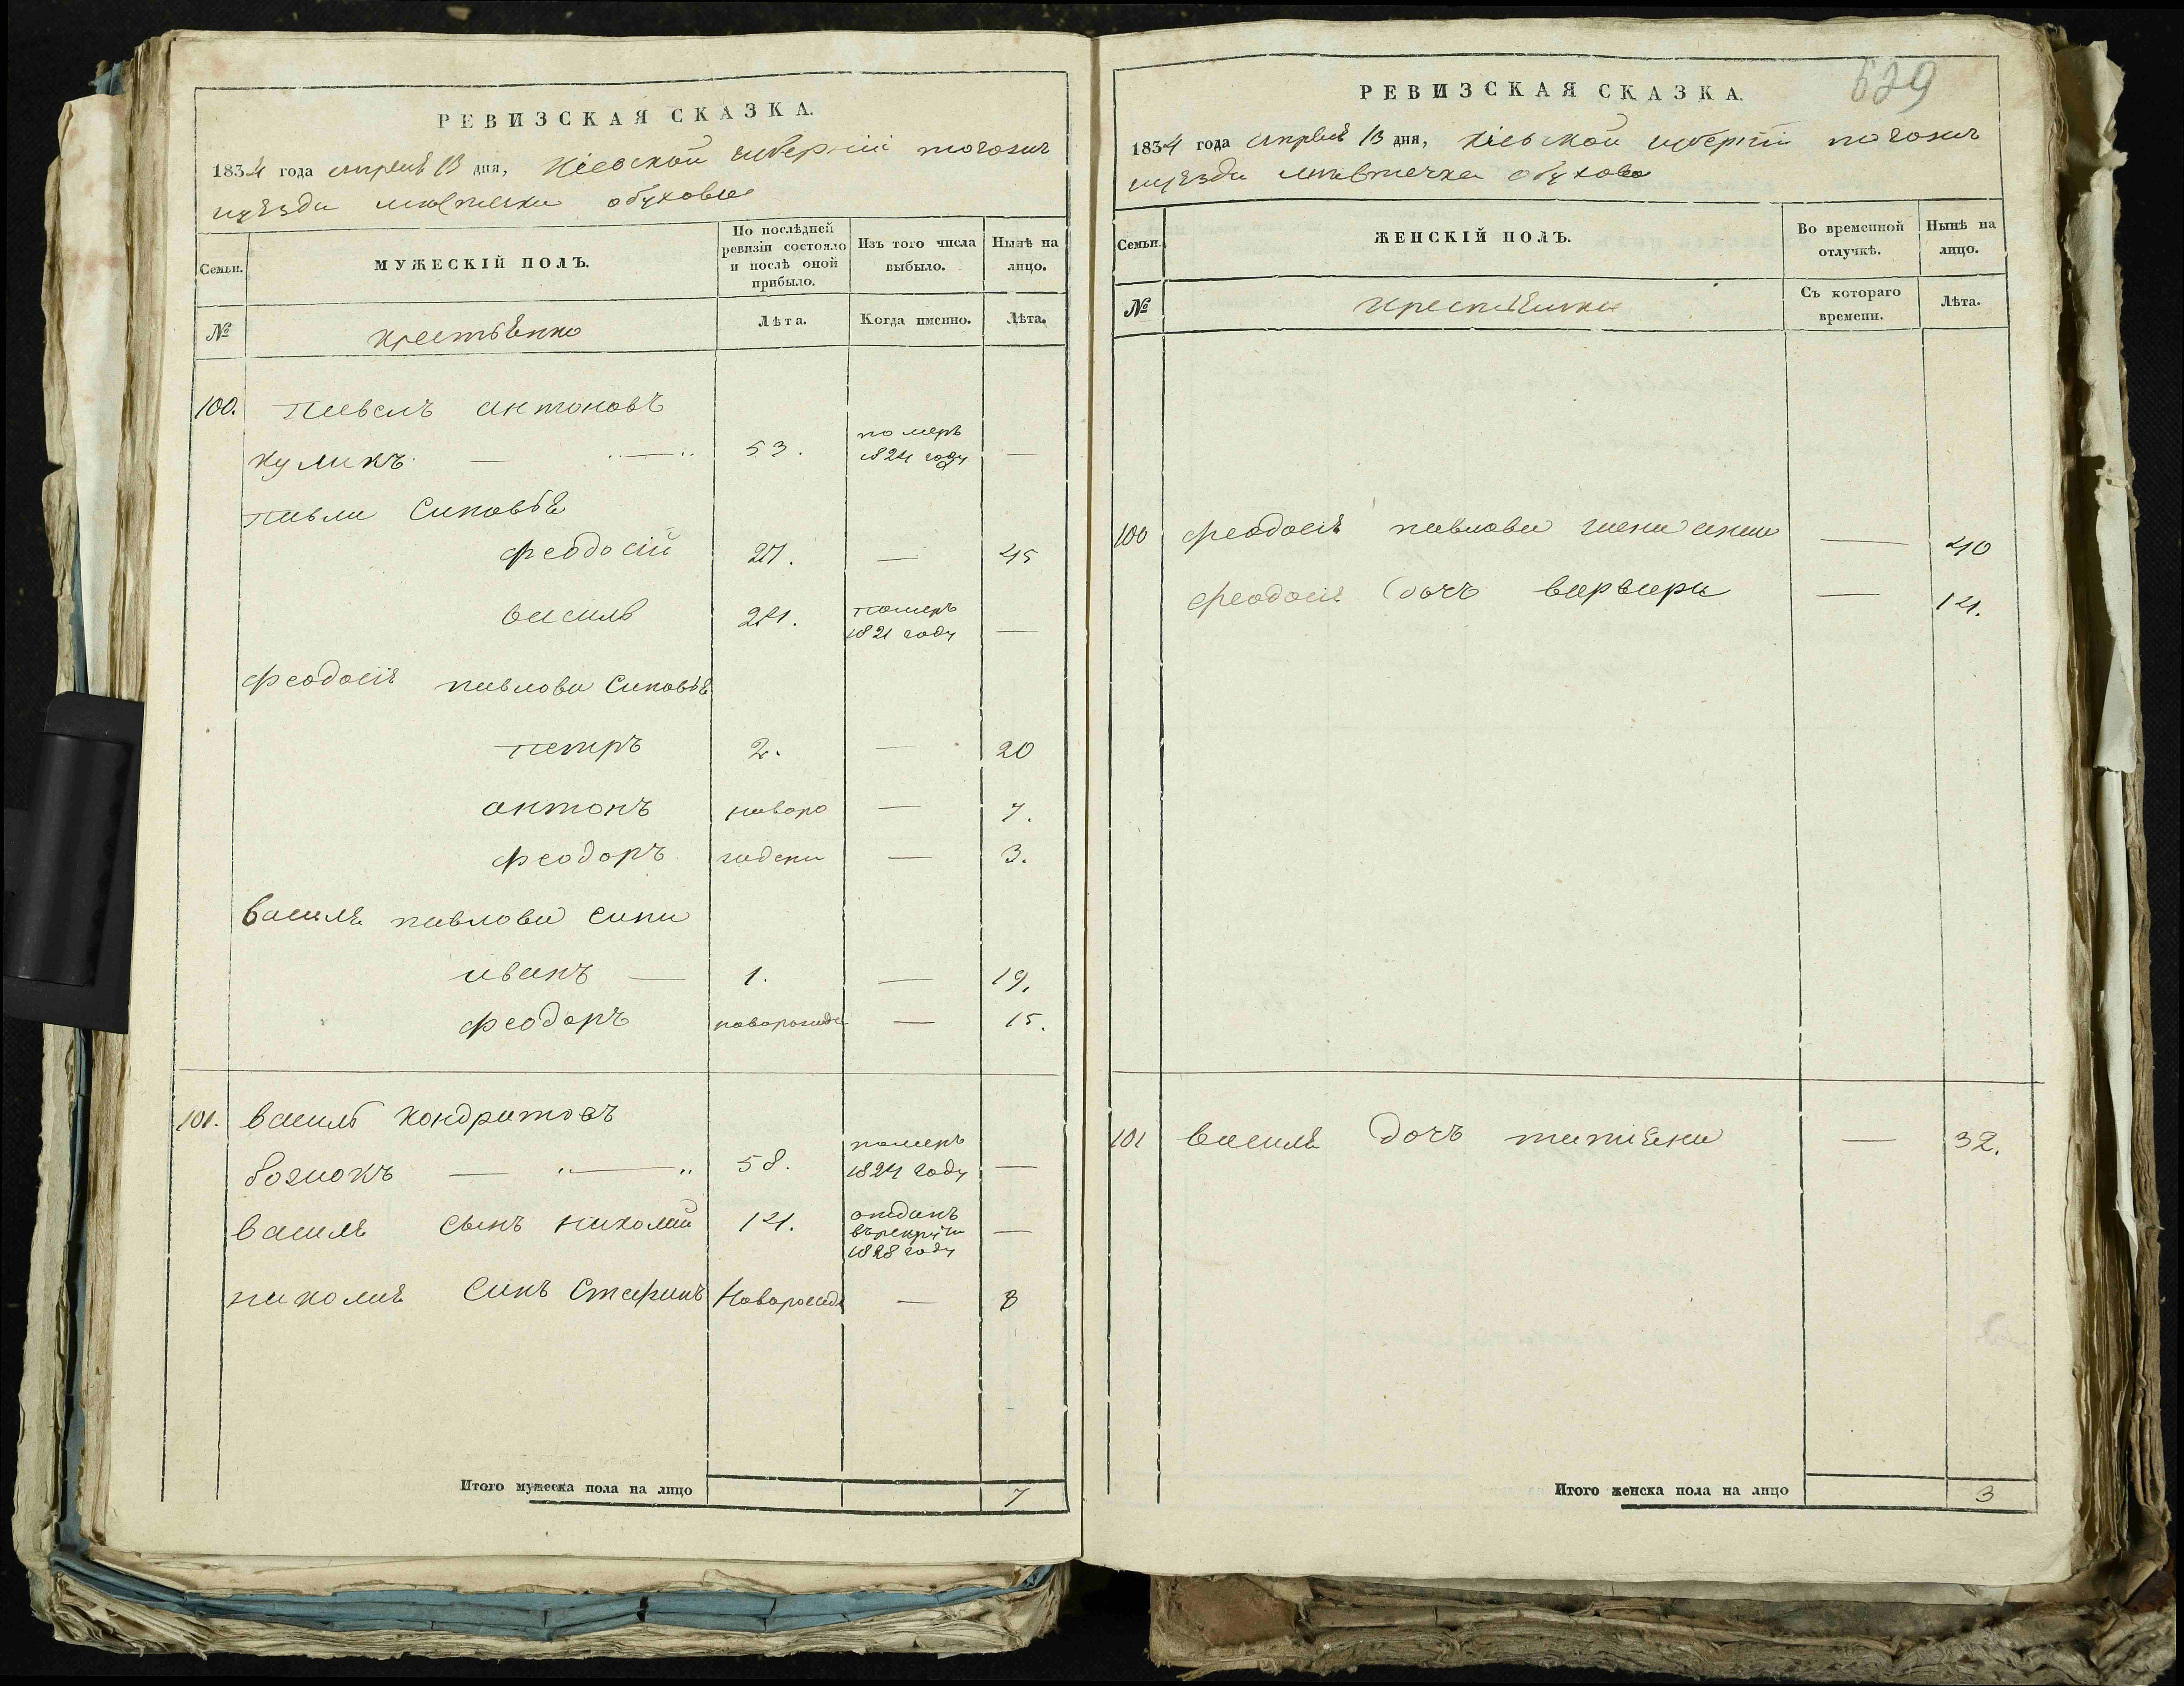 РЕВИЗСКАЯ СКАЗКА.
1834 года апреля 13 дня, Кіевской губерніи
уѣзда местечка обухова
Семьи.
МУЖЕСКІЙ ПОЛЪ.
По послѣдней ревизіи состояло и послѣ оной прибыло.
Изъ того числа выбыло.
Нынѣ на лицо.
№
Лѣта.
Когда именно.
Лѣта.
100. Павелъ антоновъ
куликъ — 53. померъ 1824 году —
павла Синовья
феодосій 27. — 45
василь 24. померъ 1821 году —
феодосія павлова Синовья
петръ 2. — 20
антонъ новоро — 7.
феодоръ ждени — 3.
василя павлова сини
иванъ — 1. — 19.
феодоръ новорожде — 15.
101. василь кондратовъ
58. померъ 1824 году —
василя сынъ николай 14. отданъ врекруты 1828 году —
николая Синъ Стефанъ Новорожде — 8
Итого мужеска пола на лицо 7
629
РЕВИЗСКАЯ СКАЗКА.
1834 года апреля 13 дня, Кіевской губерніи
уѣзда местечка обухова
Семьи.
ЖЕНСКІЙ ПОЛЪ.
Во временной отлучкѣ.
Нынѣ на лицо.
№
Съ котораго времени.
Лѣта.
100 феодосія павлова жена анна — 40
феодосія дочъ варвара — 14.
101 василя дочъ татіяна — 32.
Итого женска пола на лицо 3